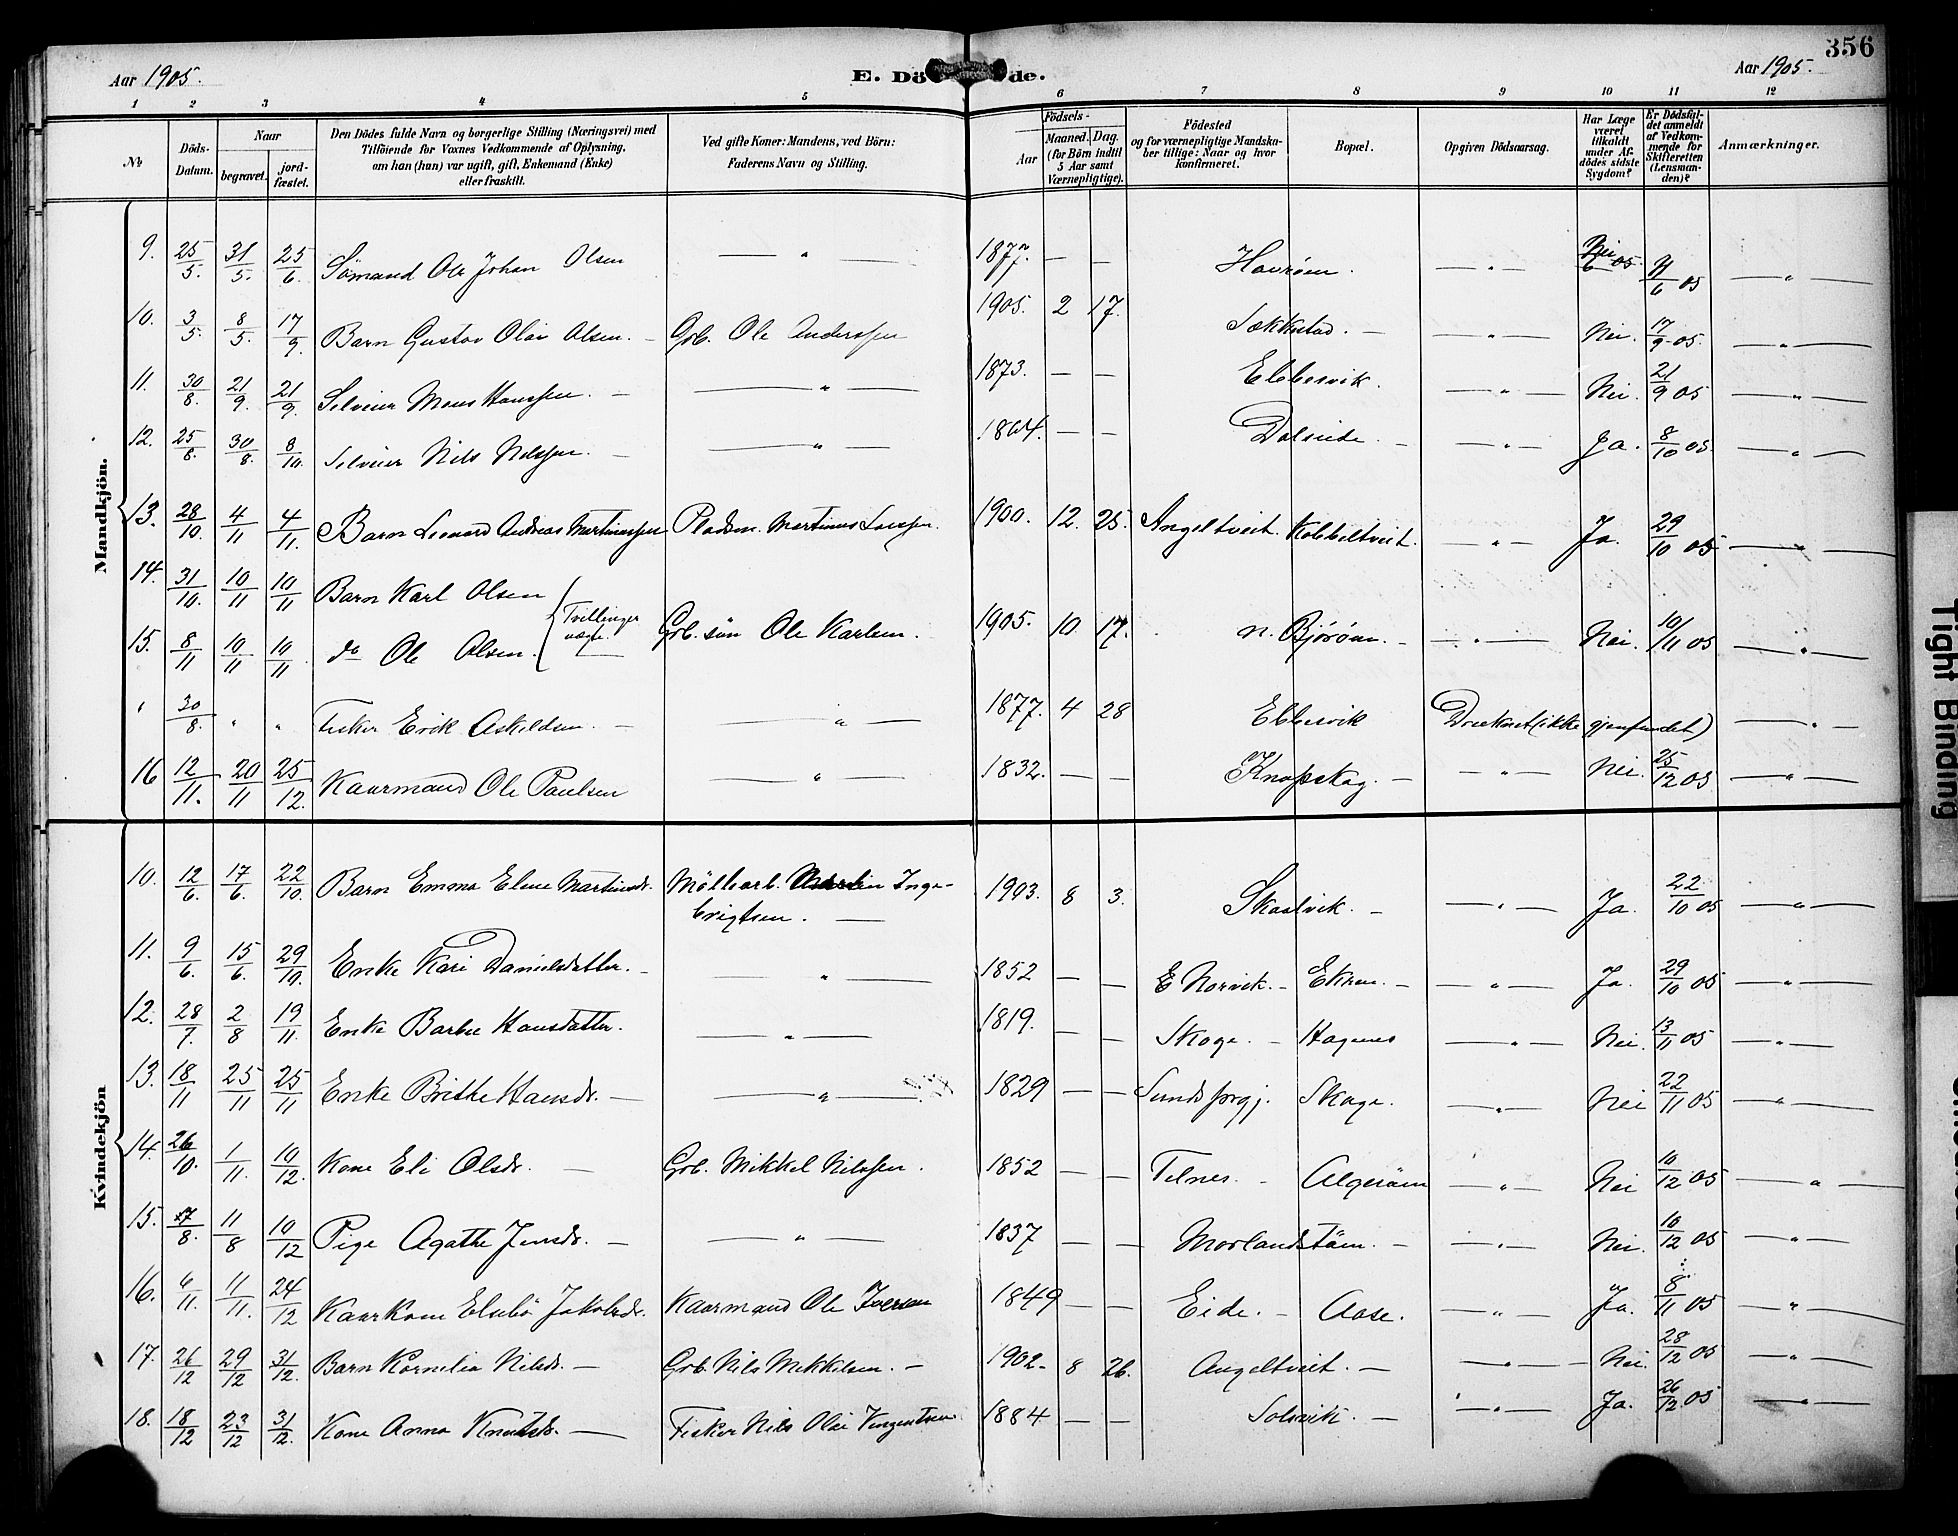 356
Aar 1905.
E. Dö de.
Aar 1905.
1 2 3 4 5 6 7 8 9 10 11 12
No
Döds-Datum.
Naar
begravet.
jord-fæstet.
Den Dödes fulde Navn og borgerlige Stilling (Næringsvei) med
Tilföiende for Voxnes Vedkommende af Oplysning,
om han (hun) var ugift, gift, Enkemand (Enke)
eller fraskilt.
Ved gifte Koner: Mandens, ved Börn:
Faderens Navn og Stilling.
Födsels-
Aar
Maaned. Dag.
(for Börn indtil
5 Aar samt
Værnepligtige).
Födested
og for værnepligtige Mandska-
ber tillige: Naar og hvor
konfirmeret.
Bopæl.
Opgiven Dödsaarsag.
Har Læge
været
tilkaldt
under Af-
dödes sidste
Sygdom?
Er Dödsfal-
det anmeldt
af Vedkom-
mende for
Skifteretten
(Lensman-
den)?
Anmærkninger.
Mandkjön.
9. 25/5. 31/5. 25/6. Sömand Ole Johan Olsen — " — 1877. — — Havröen. — " — 05. /6 05 — " —
10. 3/5. 8/5. 17/9. Barn Gustav Olai Olsen. — Grb. Ole Anderssen 1905. 2 17. Sækkstad. — — " — Nei. 17/9 05. — " —
11. 30/8. 21/9. 21/9. Selveier Mons Hanssen. — — " — 1873. — — Ebbesvik. — " — Nei. 21/9 05 — " —
12. 25/8. 30/8. 8/10. Selveier Nils Nilssen. — — " — 1864. — — Dalseide. — — " — Ja. 8/10 05. — " —
13. 28/10. 4/11 4/11. Barn Leonard Andreas Martinussen Pladsm. Martinus Larssen. 1900. 12. 25. Angeltveit. Kobbeltveit. — " — Ja. 29/10 05 — " —
14. 31/10. 10/11 10/11 Barn Karl Olsen
Tvillinger
15. 8/11 10/11 10/11 do Ole Olsen. Grb. sön Ole Karlsen. 1905. 10. 17. n. Björöen. — — " — Nei. 10/11 05 — " —
" 30/8. " " Fisker Erik Askildsen. — — " — 1877. 4 28 Ebbesvik Druknet (ikke gjenfundet) — " —
16 12/11. 20/11 25/12. Kaarmand Ole Paulsen — " — 1832. — — Knapskog. — — " — Nei. 25/12 05 — " —
Kvindekjön
10. 12/6. 17/6. 22/10. Barn Emma Eline Martinsdr. Möllearb. Martin Inge-
brigtsen. — 1903. 8 3. Skaalvik. — — " — Ja. 22/10 05 — " —
11. 9/6. 15/6. 29/10. Enke Kari Danielsdatter. — — " — 1852 — — E Norvik. — Ekren. — — " — Ja. 29/10 05 — " —
12. 28/7. 2/8 19/11. Enke Barbre Hansdatter. — " — 1819. — — Skoge. — Hagenes — " — Nei. 13/11 05 — " —
13. 18/11 25/11 25/11 Enke Brithe Hansdr. — — " — 1829 — — Sunds prgj. Skoge. — " — Nei 22/11 05 — " —
14. 26/10. 1/11. 10/12. Kone Eli Olsdr. — Grb. Mikkel Nilssen. 1852 — — Telnes. — Algeröen — " — Nei 10/12 05 — " —
15. 7/8. 11/8 10/12 Pige Agathe Jensdr. — — " — 1837 — — Morlandstöen. — — " — Nei. 10/12 05 — " —
16. 6/11. 11/11. 24/12 Kaarkone Elsebö Jakobsdr. Kaarmand Ole Iversen 1849 — — Eide. — Aase. — " — Ja. 8/11 05 — " —
17. 26/12 29/12 31/12. Barn Kornelia Nilsdr. — Grb. Nils Mikkelsen. — 1902. 8 26. Angeltveit. — — " — Nei. 28/12 05 — " —
18. 18/12 23/12 31/12. Kone Anna Knutsdr. — Fisker Nils Olai Vingentsen. 1884 — — Solsvik. — — " — Ja. 26/12 05 — " —
Tight Binding